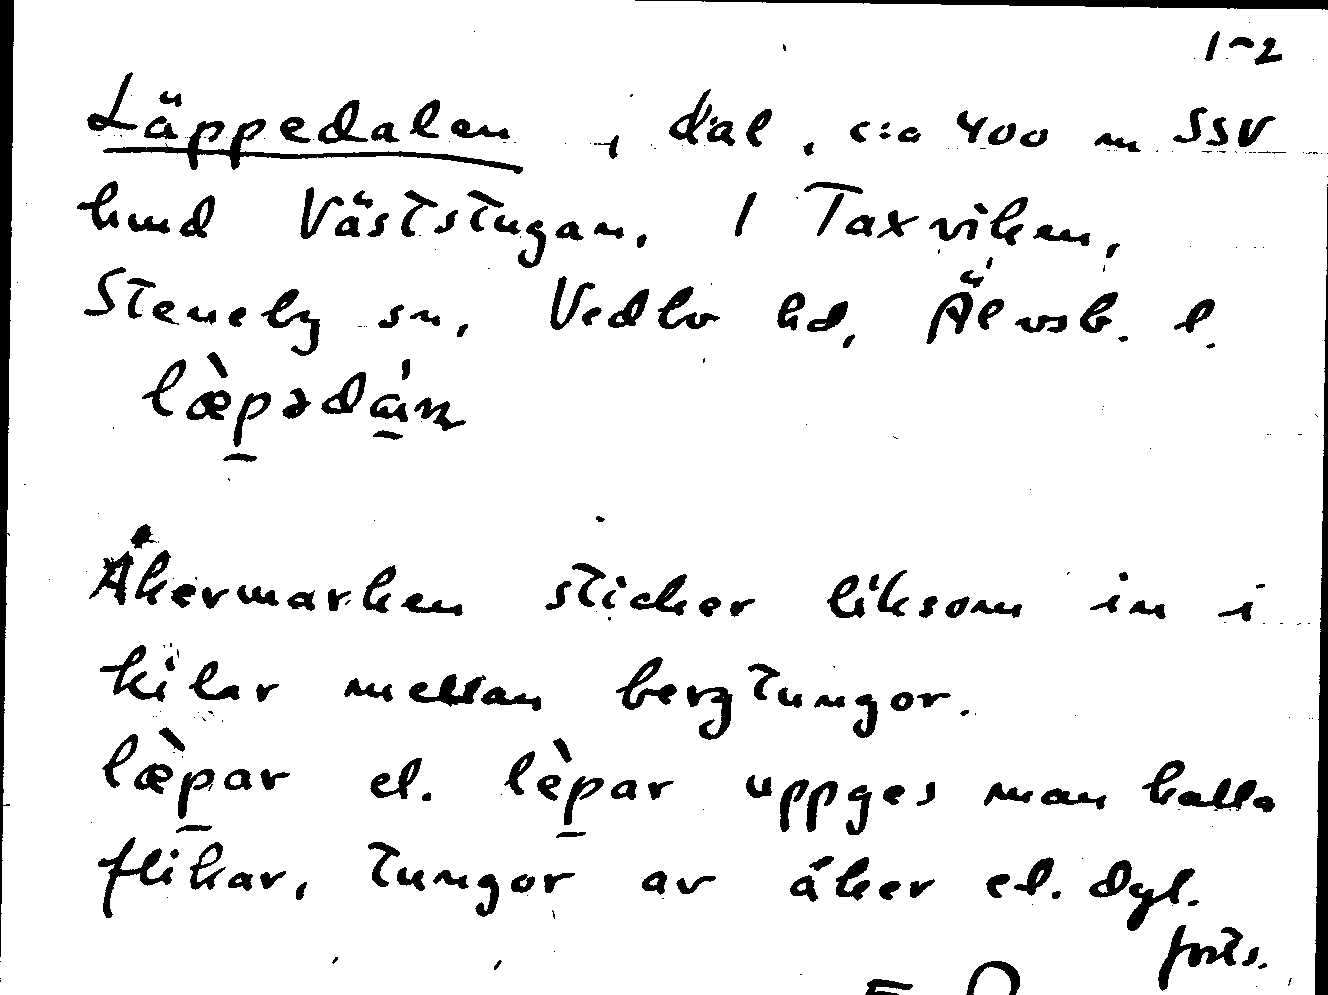 1-2
Läppedalen, dal, c:a 400 m SSV
hmd Väststugan, 1 Taxviken,
Steneby sn, Vedbo hd, Älvsb. l.
læ̀pədáɳ
Åkermarken sticker liksom in i
kilar mellan bergtungor.
læ̀par el. lèpar uppges man kalla
flikar, tungor av åker el. dyl.
forts.